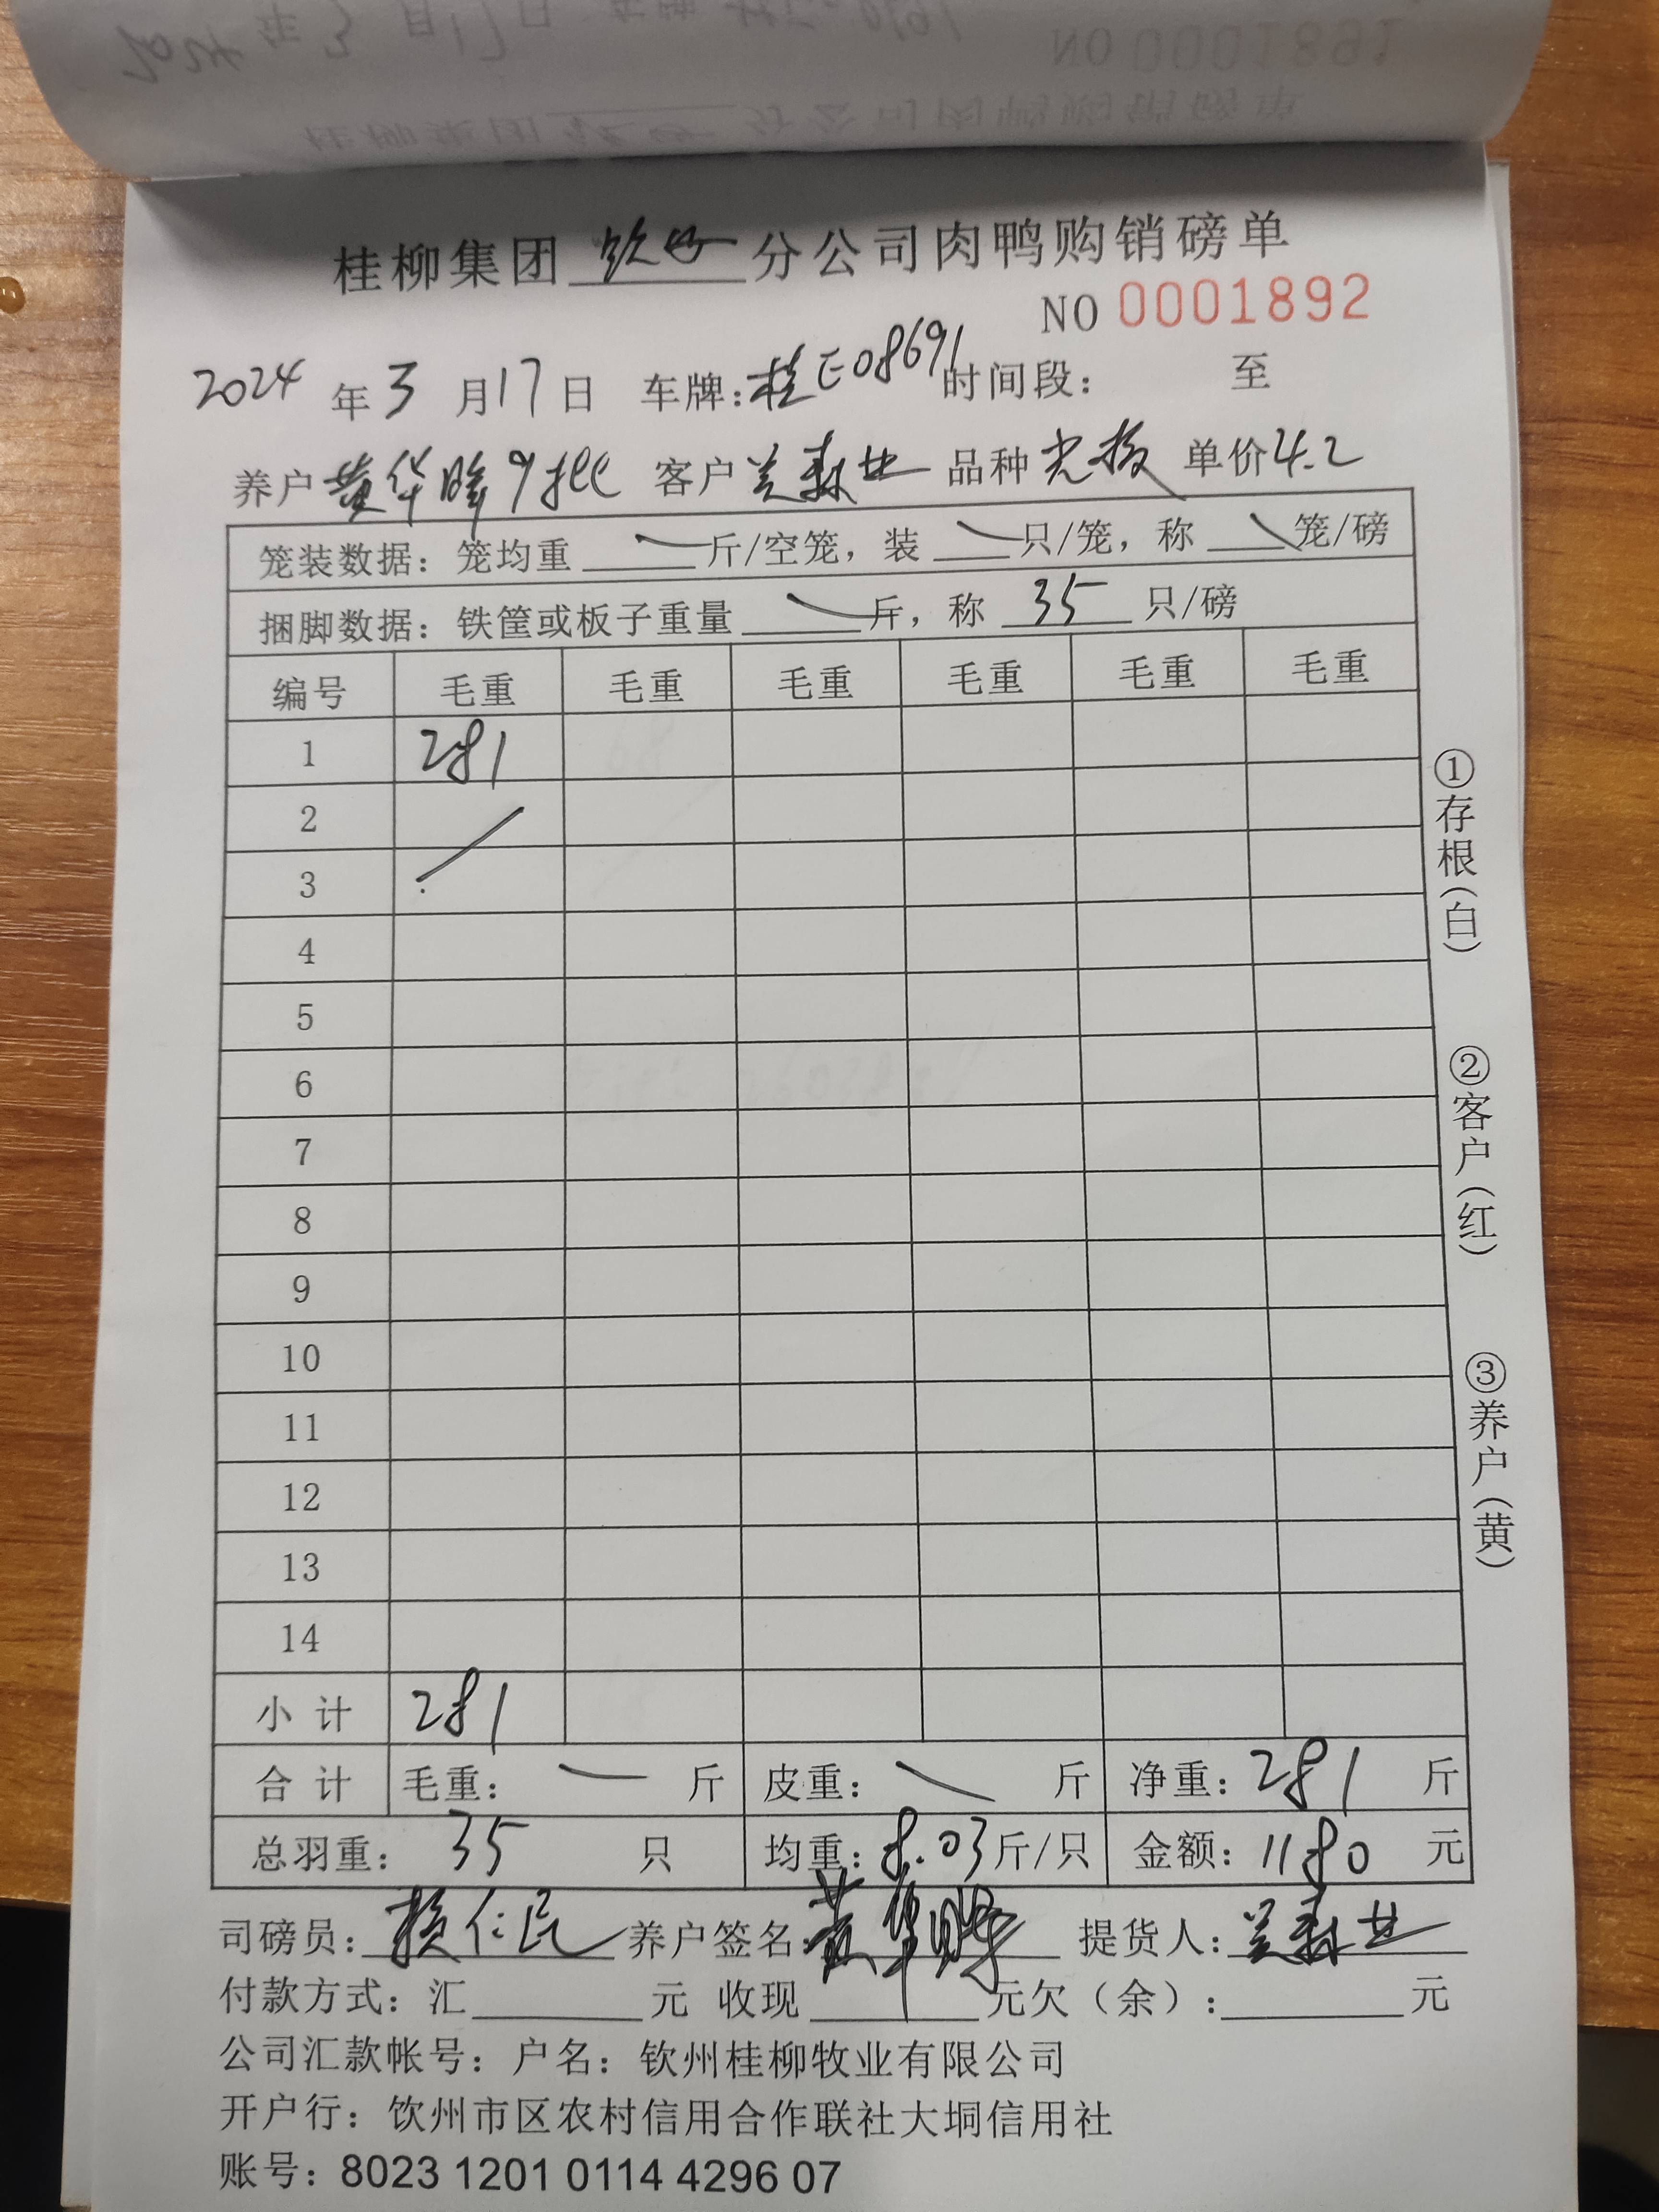 桂柳集团 钦州 分公司肉鸭购销磅单
NO 0001892
2024 年 3 月 17 日 车牌:桂E08691 时间段: 至
养户 黄华晖9批 客户 兰森世 品种 单价 4.2
笼装数据:笼均重 一 斤/空笼,装 一 只/笼,称 一 笼/磅
捆脚数据:铁筐或板子重量 一 斤,称 35 只/磅
编号 毛重 毛重 毛重 毛重 毛重 毛重
1 281
2
3
4
5
6
7
8
9
10
11
12
13
14
小计 281
合计 毛重: 一 斤 皮重: 一 斤 净重: 281 斤
总羽重: 35 只 均重: 8.03 斤/只 金额: 1180 元
司磅员: 仁民 养户签名: 黄华晖 提货人: 兰森世
付款方式:汇 元 收现 元欠(余): 元
公司汇款帐号:户名:钦州桂柳牧业有限公司
开户行:饮州市区农村信用合作联社大垌信用社
账号:8023 1201 0114 4296 07
①存根(白)
②客户(红)
③养户(黄)